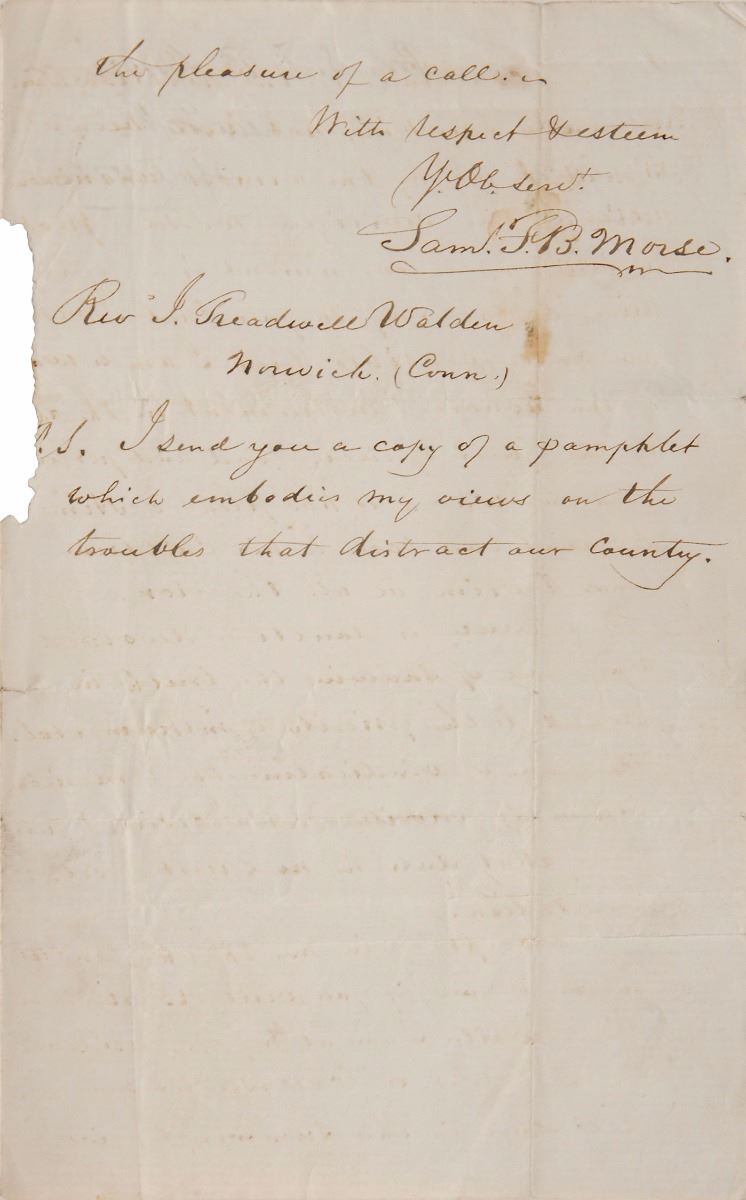 the pleasure of a call. ~
With respect & esteem
Yr. Ob. servt.
Saml. F. B. Morse.
Revd J. Treadwell Walden
Norwich. (Conn.)
P.S. I send you a copy of a pamphlet
which embodies my views on the
troubles that distract our country.